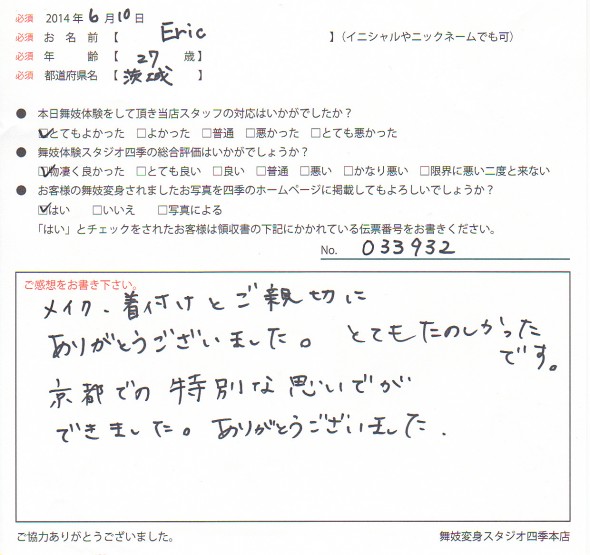 必須 2014年6月10日
必須 お名前【 Eric 】(イニシャルやニックネームでも可)
必須 年齢【 27 歳】
必須 都道府県名【 茨城 】
● 本日舞妓体験をして頂き当店スタッフの対応はいかがでしたか?
☑とてもよかった □よかった □普通 □悪かった □とても悪かった
● 舞妓体験スタジオ四季の総合評価はいかがでしょうか?
☑物凄く良かった □とても良い □良い □普通 □悪い □かなり悪い □限界に悪い二度と来ない
● お客様の舞妓変身されましたお写真を四季のホームページに掲載してもよろしいでしょうか?
☑はい □いいえ □写真による
「はい」とチェックをされたお客様は領収書の下記にかかれている伝票番号をお書きください。
No. 033932
ご感想をお書き下さい。
メイク、着付けとご親切に
ありがとうございました。 とてもたのしかった
です。
京都での特別な思いでが
できました。ありがとうございました.
ご協力ありがとうございました。 舞妓変身スタジオ四季本店